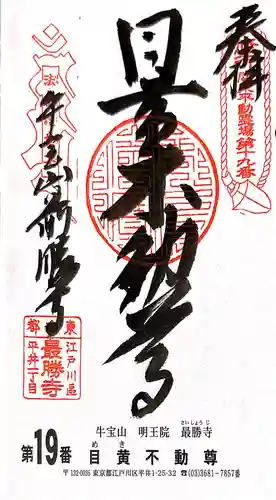 奉拝
関東三十六不動霊場第十九番
目黄不動尊
牛宝山最勝寺
東京都江戸川區
平井一丁目
最勝寺
牛宝山 明王院 最勝寺
さいしょうじ
第19番
めき
目黄不動尊
〒132-0035 東京都江戸川区平井1-25-32 ☎(03)3681-7857番